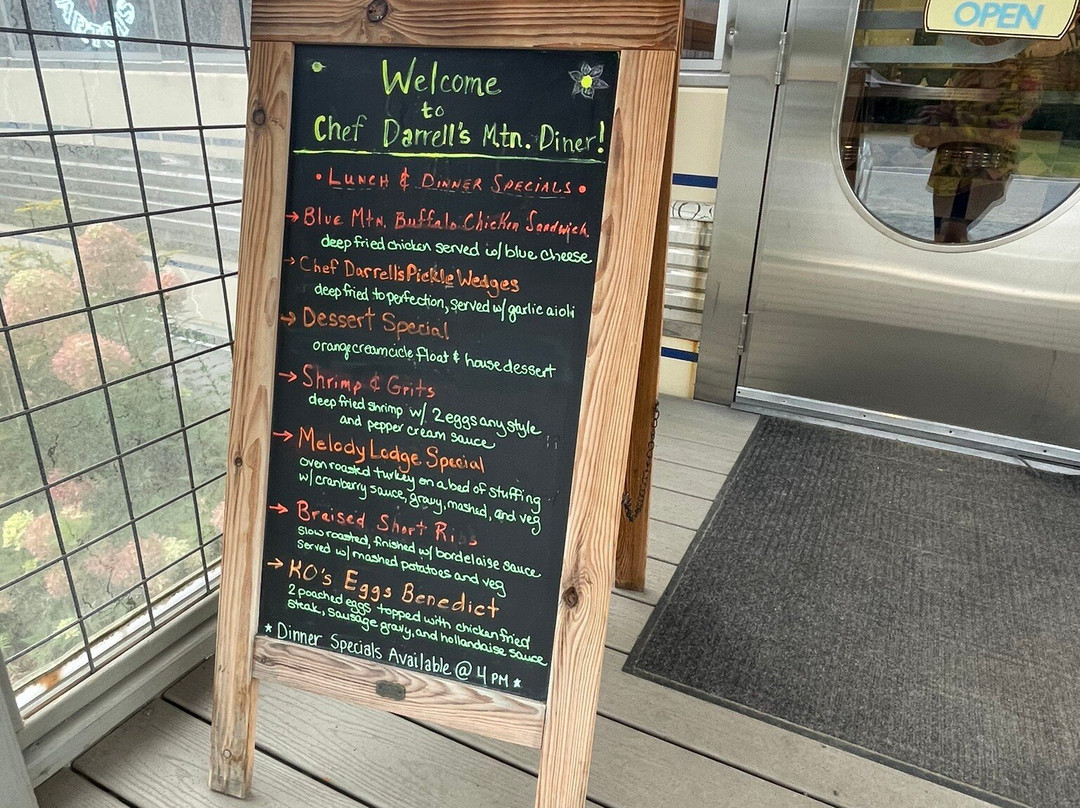 OPEN
Welcome
to
Chef Darrell's Mtn. Diner!
• LUNCH & DINNER SPECIALS •
→ Blue Mtn. Buffalo Chicken Sandwich.
deep fried chicken served w/ blue cheese
→ Chef Darrells Pickle Wedges
deep fried to perfection, served w/ garlic aioli
→ Dessert Special
orange creamcicle float & house dessert
→ Shrimp & Grits
deep fried shrimp w/ 2 eggs any style
and pepper cream sauce
→ Melody Lodge Special
oven roasted turkey on a bed of stuffing
w/ cranberry sauce, gravy, mashed, and veg
→ Braised Short Ribs
slow roasted, finished w/ bordelaise sauce
served w/ mashed potatoes and veg
→ KO's Eggs Benedict
2 poached eggs topped with chicken fried
steak, sausage gravy, and hollandaise sauce
* Dinner Specials Available @ 4 PM *